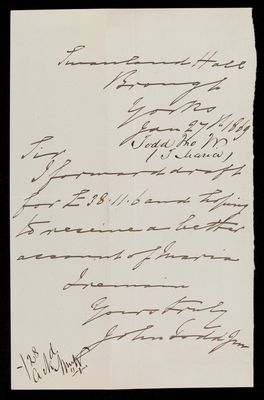 Swanland Hall
Brough
Yorks
Jan 27th 1869
Todd Tho Wr
(I. Maria)
Sir
I forward draft
for £38.11.6 and hoping
to receive a better
account of Maria
I remain
Yours truly
John Todd Jun